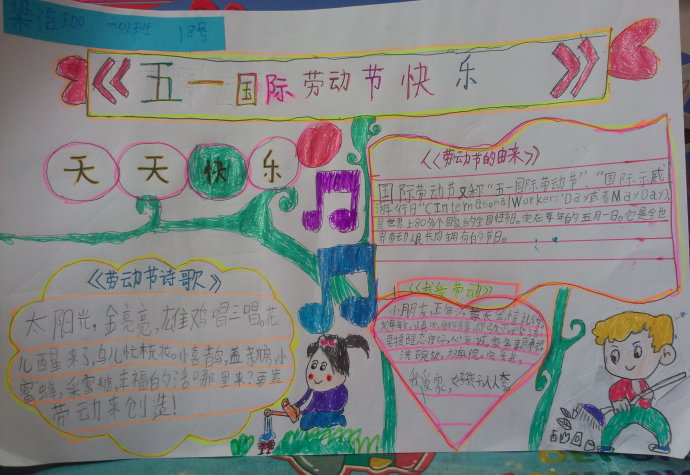 梁浩珈 一(1)班 18号
《五一国际劳动节快乐》
天天快乐
《劳动节的由来》
国际劳动节又称"五一国际劳动节"、"国际示威
游行日"(International Workers' Day或者May Day),
是世界上80多个国家的全国性节日。定在每年的五月一日。它是全世
界劳动人民共同拥有的节日。
《劳动节诗歌》
太阳光,金亮亮,雄鸡唱三唱。花
儿醒来了,鸟儿忙梳妆。小喜鹊,盖新房,小
蜜蜂,采蜜糖,幸福的生活哪里来?要靠
劳动来创造!
《我爱劳动》
小朋友,
洗碗
我爱家,好孩子人人夸。